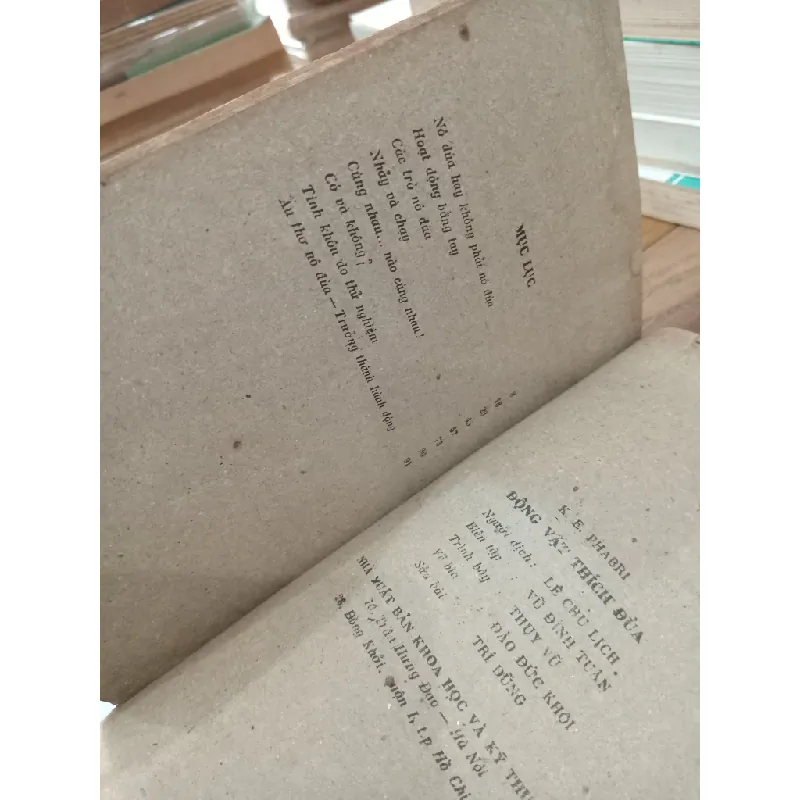 MỤC LỤC
Nô đùa hay không phải nô đùa
Hoạt động bằng tay
Các trò nô đùa
Nhảy và chạy
Cùng nhau... nào cùng nhau!
Có và không!
Tinh khôn do thử nghiệm
Ấu thơ nô đùa — Trưởng thành hành động
73
80
91
K. E. PHABRI
ĐỘNG VẬT THÍCH ĐÙA
Người dịch: LÊ CHÚ LỊCH
Biên tập: VŨ ĐÌNH TUÂN
Trình bày: THUỴ VŨ
Vẽ bìa: ĐÀO ĐỨC KHÔI
Sửa bài: TRÍ DŨNG
NHÀ XUẤT BẢN KHOA HỌC VÀ KỸ THU
Hưng Đạo — Hà Nội
28, Đồng Khởi, quận I, t.p Hồ Chí